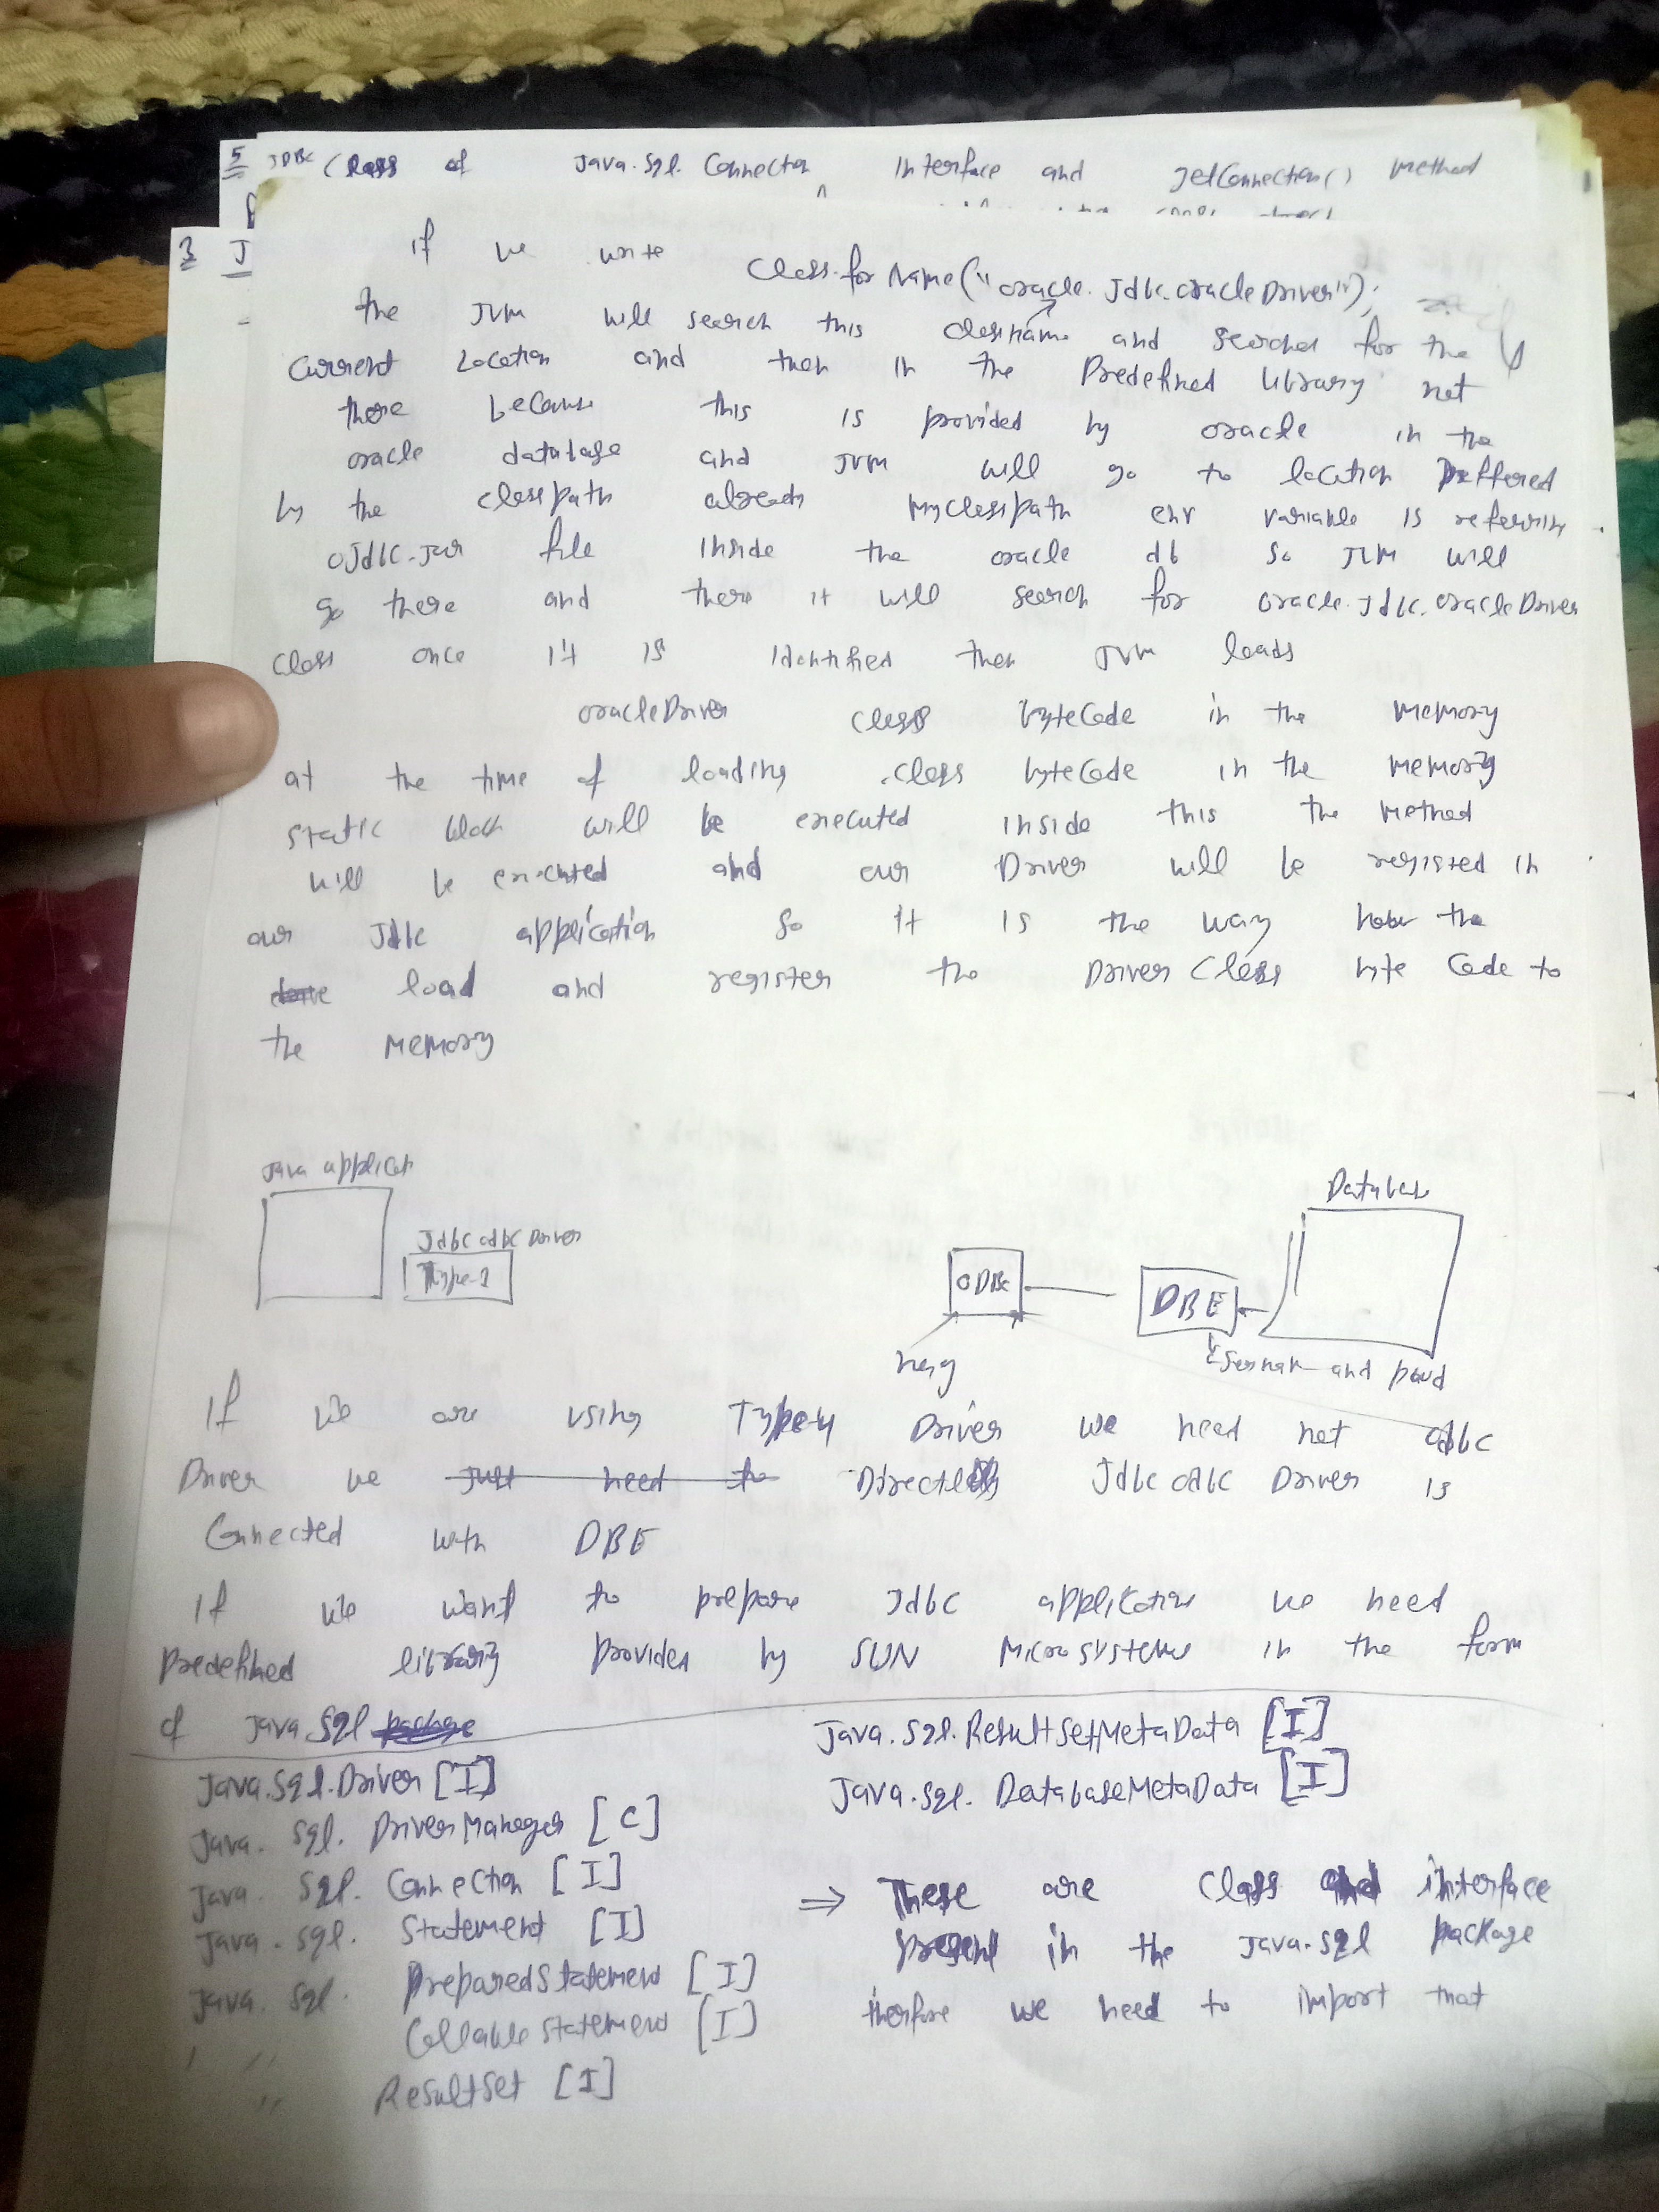 5 JDBC Class of Java.Sql. Connection Interface and getConnection() Method
3 J
If we write Class.forName("oracle.Jdbc.oracleDriver");
the JVM will search this classname and searches for the
current Location and then in the Predefined library not
there because this is provided by oracle in the
oracle database and JVM will go to location Reffered
by the classpath already MyClasspath env variable is referring
oJdbc.jar file inside the oracle db so JVM will
go there and there it will search for oracle.Jdbc.oracleDriver
class once it is identified then JVM loads
oracleDriver class byteCode in the Memory
at the time of loading .class byteCode in the Memory
static block will be executed inside this the Method
will be executed and our Driver will be registed in
our Jdbc application so it is the way how the
load and register the Driver class byte Code to
the Memory
Java applicat
Jdbc odbc Driver
Type-1
Database
ODBC
DBE
and
If we are using Type-4 Driver we need not odbc
Driver we just need to Directly Jdbc odbc Driver is
Connected with DBE
If we want to prepare Jdbc application we need
Predefined library Provided by SUN Microsystems in the form
of Java.Sql package
Java.Sql.Driver [I]
Java.Sql.DriverManager [C]
Java.Sql.Connection [I]
Java.Sql.Statement [I]
Java.Sql.PreparedStatement [I]
" " CallableStatement [I]
" ResultSet [I]
Java.Sql.ResultSetMetaData [I]
Java.Sql.DatabaseMetaData [I]
⇒ These are Class and interface
Present in the Java.Sql package
therfore we need to import that